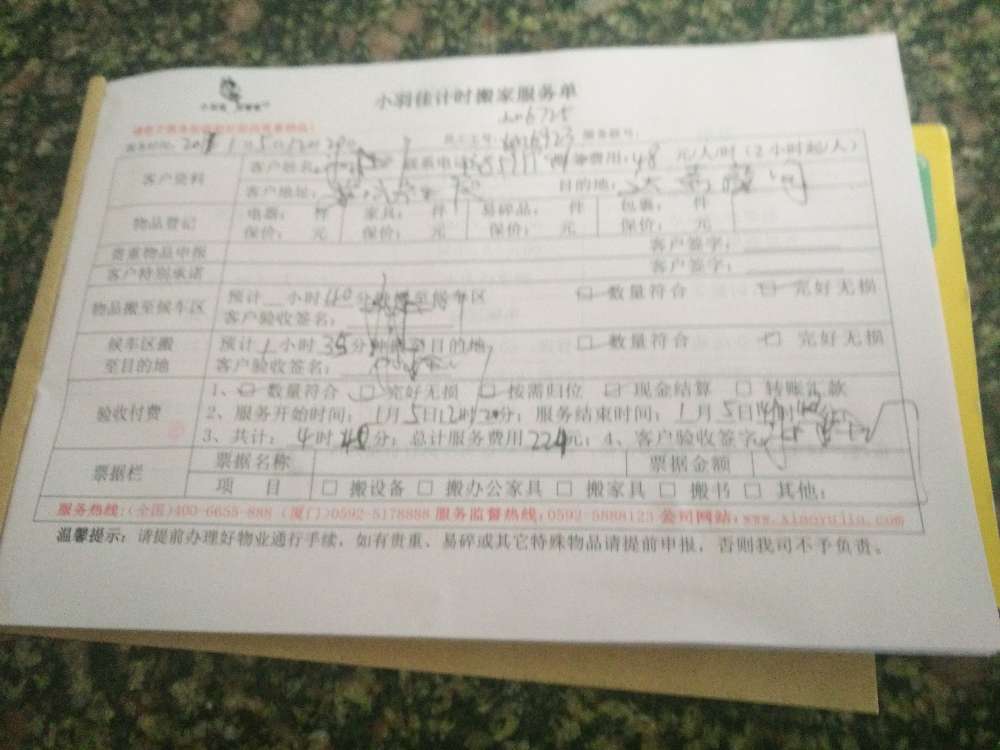 小羽佳计时搬家服务单
服务时间: 1月5日12时20 员工工号: 服务编号:
客户资料 客户姓名: 联系电话: 服务费用:48元/人/时(2小时起/人)
客户地址: 目的地:
物品登记 电器: 件 家具: 件 易碎品: 件 包裹: 件
保价: 元 保价: 元 保价: 元 保价: 元
贵重物品申报 客户签字:
客户特别承诺 客户签字:
物品搬至候车区 预计 小时40分钟搬至候车区 □数量符合 □完好无损
客户验收签名:
候车区搬至目的地 预计1小时35分钟搬至目的地 □数量符合 □完好无损
客户验收签名:
验收付费 1、□数量符合 □完好无损 □按需归位 □现金结算 □转账汇款
2、服务开始时间:1月5日12时20分;服务结束时间:1月5日
3、共计:4时40分;总计服务费用224元;4、客户验收签字
票据栏 票据名称 票据金额
项目 □搬设备 □搬办公家具 □搬家具 □搬书 □其他:
服务热线:(全国)400-6655-888 (厦门)0592-5178888 服务监督热线:0592-5888123 公司网站:www.xiaoyujia.com
温馨提示:请提前办理好物业通行手续,如有贵重、易碎或其它特殊物品请提前申报,否则我司不予负责。